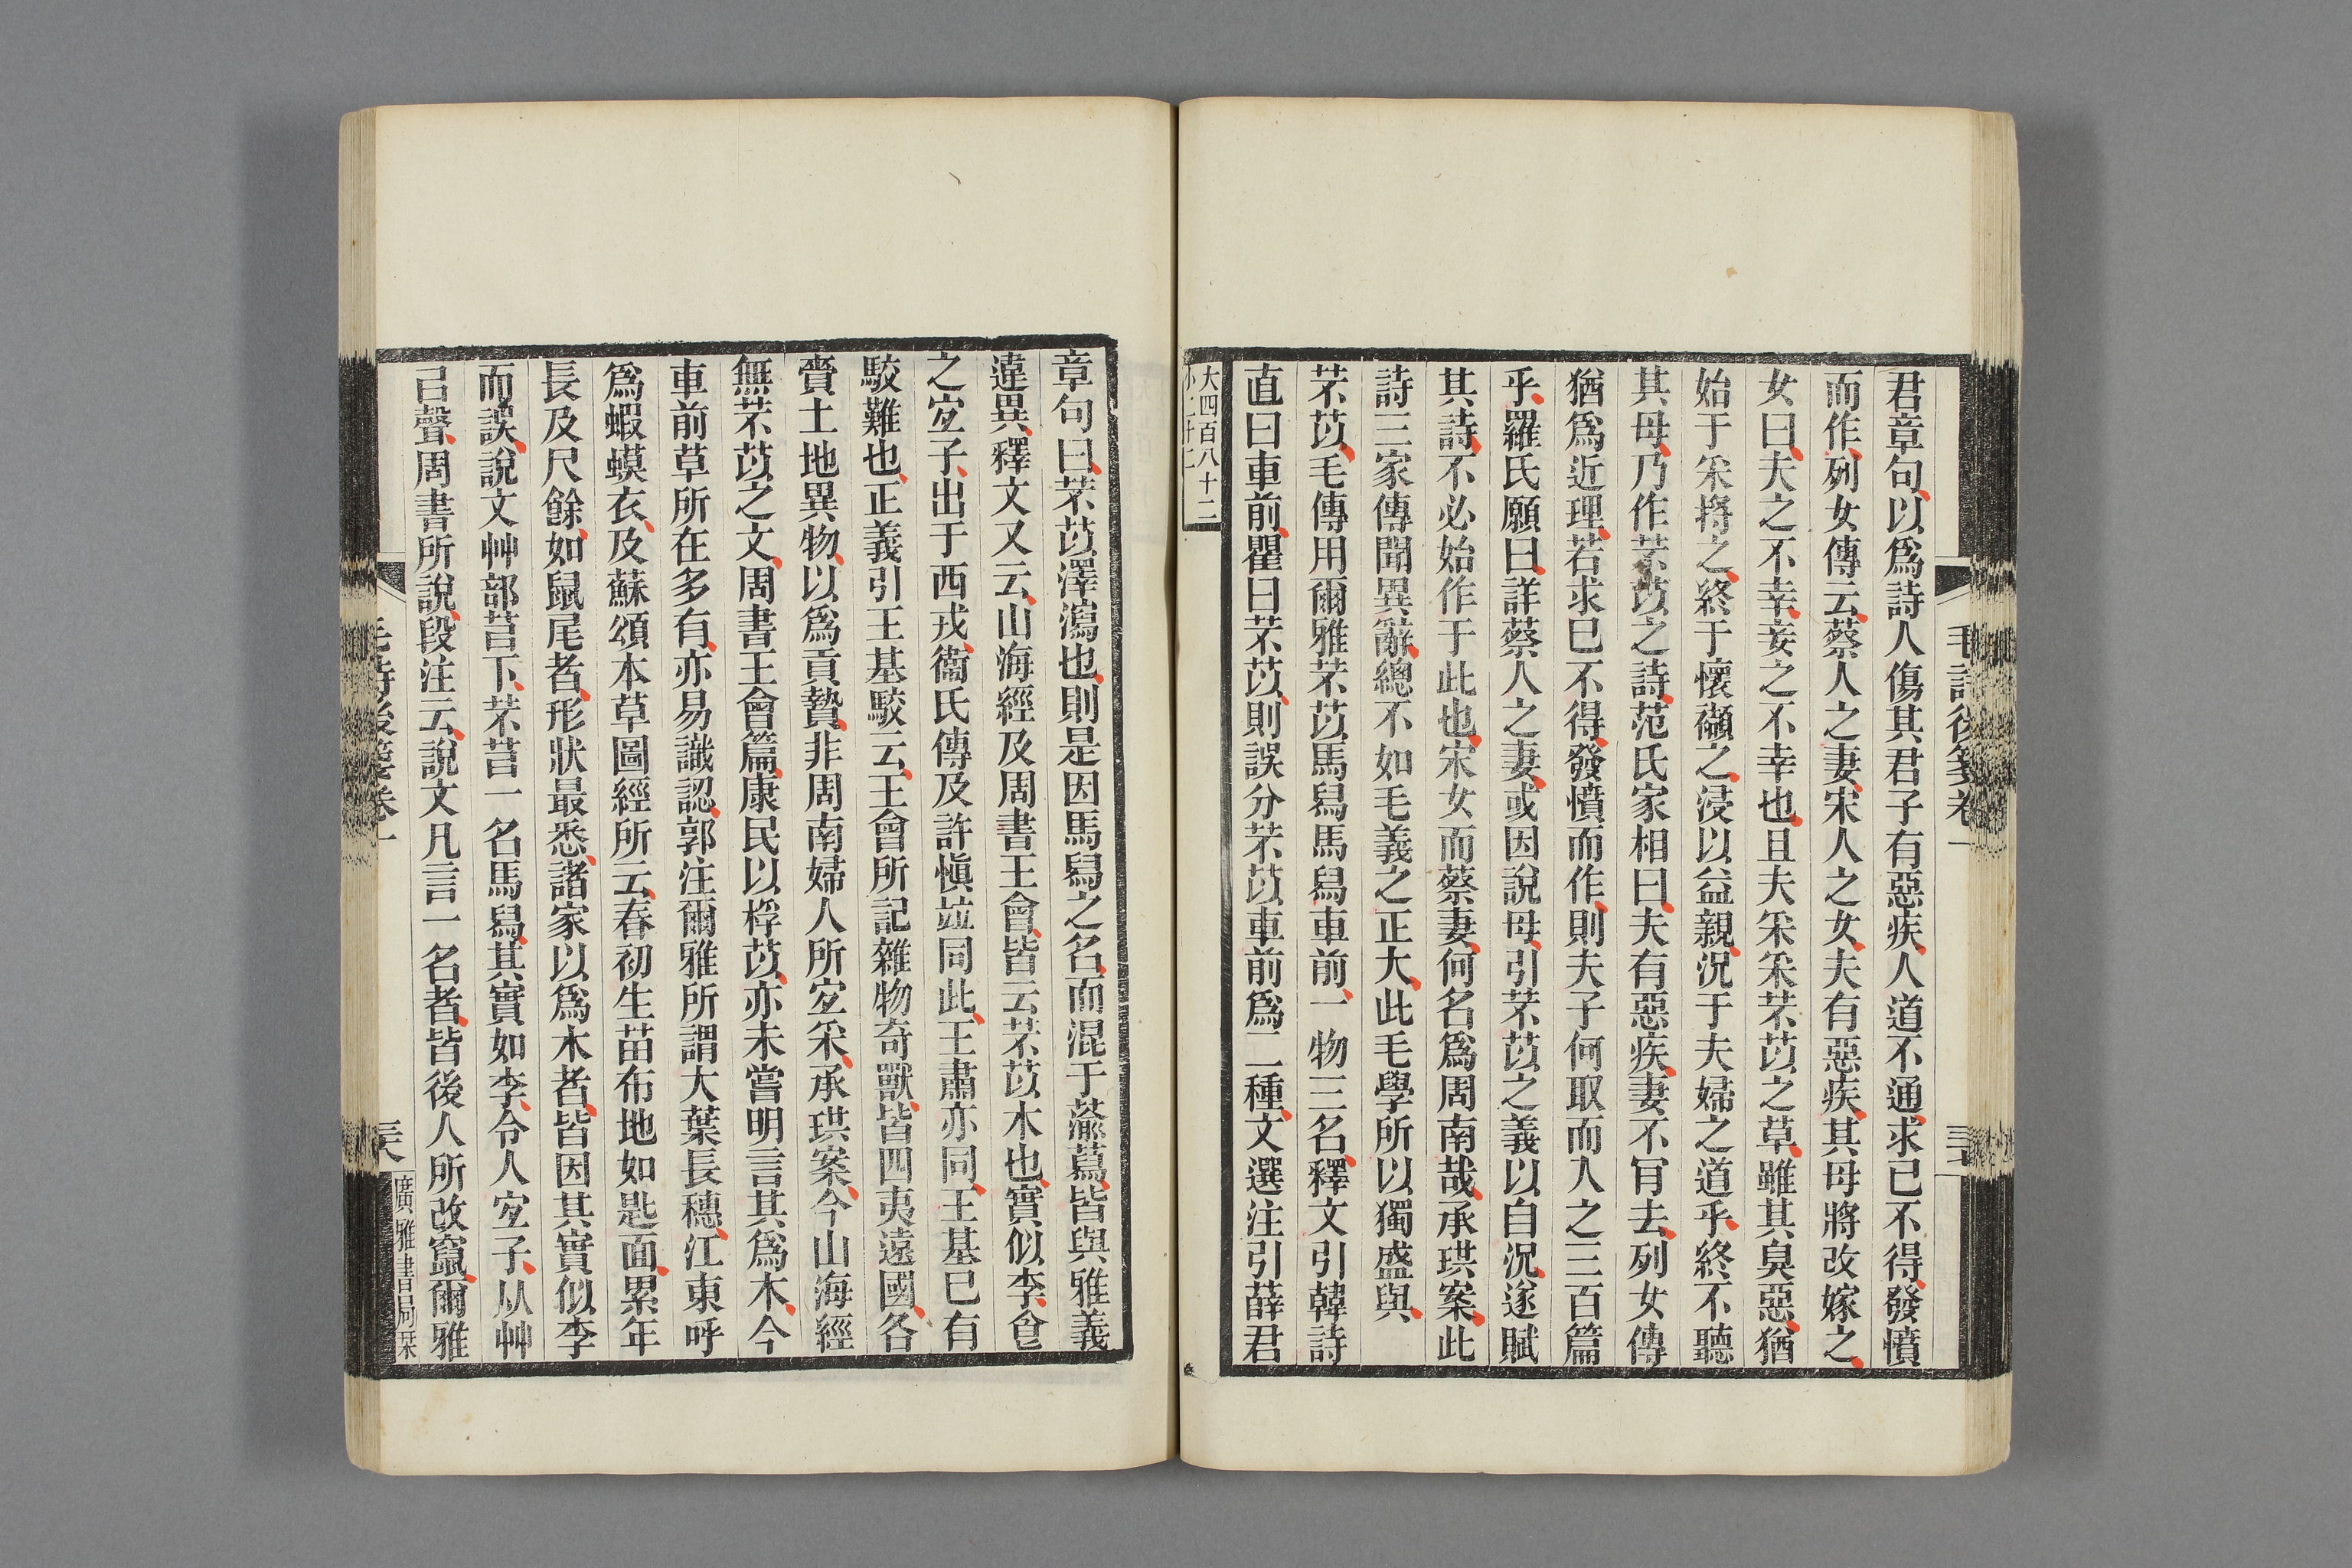 毛詩後箋卷一
君章句以爲詩人傷其君子有惡疾人道不通求已不得發憤
而作列女傳云蔡人之妻宋人之女夫有惡疾其母將改嫁之
女曰夫之不幸妾之不幸也且夫采采芣苡之草雖其臭惡猶
始于采捋之終于懷襭之浸以益親況于夫婦之道乎終不聽
其母乃作芣苡之詩范氏家相曰夫有惡疾妻不肎去列女傳
猶爲近理若求已不得發憤而作則夫子何取而入之三百篇
乎羅氏願曰詳蔡人之妻或因說母引芣苡之義以自況遂賦
其詩不必始作于此也宋女而蔡妻何名爲周南哉承珙案此
詩三家傳聞異辭總不如毛義之正大此毛學所以獨盛與
芣苡毛傳用爾雅芣苡馬舄馬舄車前一物三名釋文引韓詩
直曰車前瞿曰芣苡則誤分芣苡車前爲二種文選注引薛君
大四百八十二
章句曰芣苡澤瀉也則是因馬舄之名而混于蕍蕮皆與雅義
違異釋文又云山海經及周書王會皆云芣苡木也實似李食
之宐子出于西戎衞氏傳及許愼竝同此王肅亦同王基已有
駮難也正義引王基駮云王會所記雜物奇獸皆四夷遠國各
賷土地異物以爲貢贄非周南婦人所宐采承珙案今山海經
無芣苡之文周書王會篇康民以桴苡亦未嘗明言其爲木今
車前草所在多有亦易識認郭注爾雅所謂大葉長穗江東呼
爲蝦蟆衣及蘇頌本草圖經所云春初生苗布地如匙面累年
長及尺餘如鼠尾者形狀最悉諸家以爲木者皆因其實似李
而誤說文艸部苢下芣苢一名馬舄其實如李令人宐子从艸
㠯聲周書所說段注云說文凡言一名者皆後人所改竄爾雅
毛詩後箋卷一
廣雅書局栞